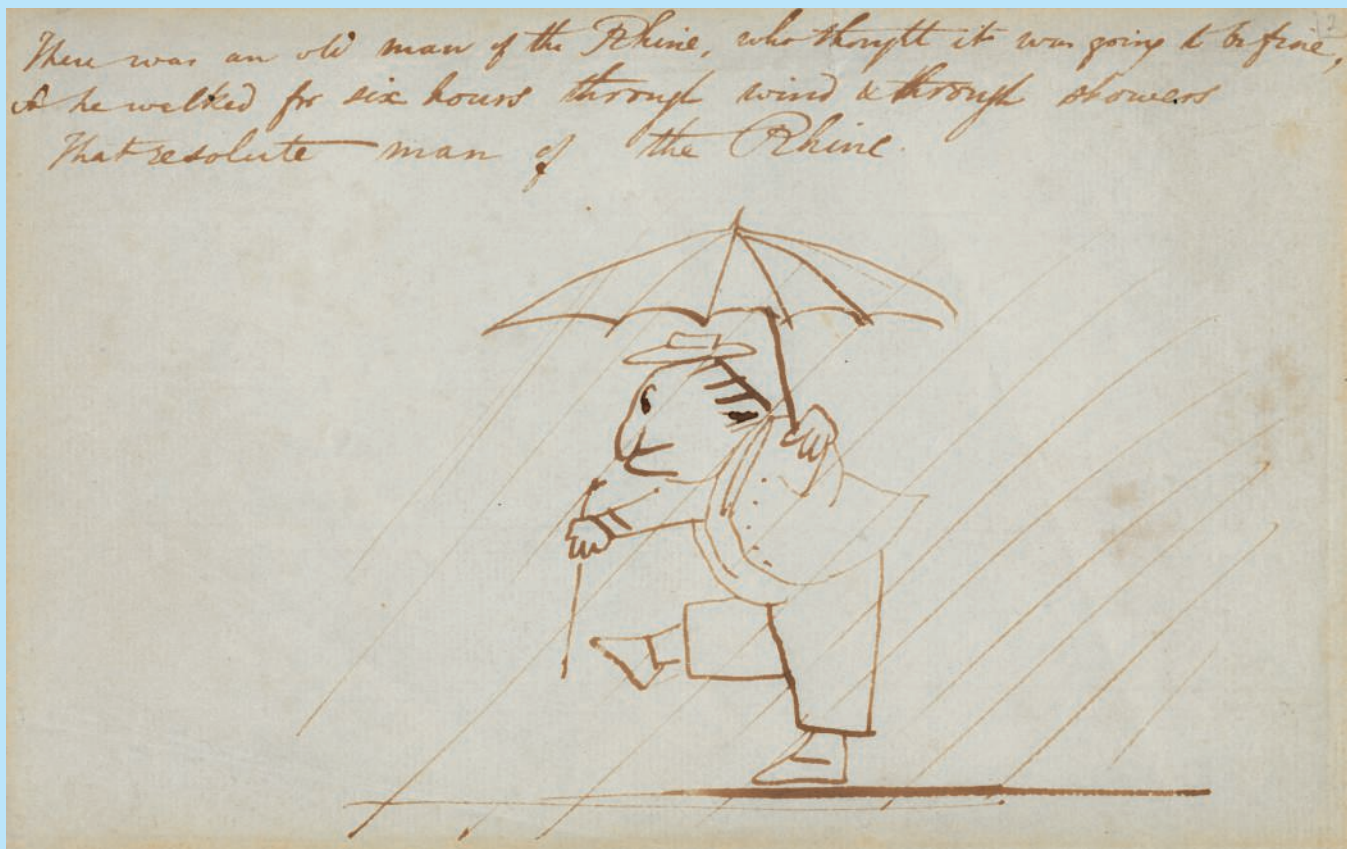 There was an old man of the Rhine, who thought it was going to be fine,
& he walked for six hours through wind & through showers
That resolute man of the Rhine.